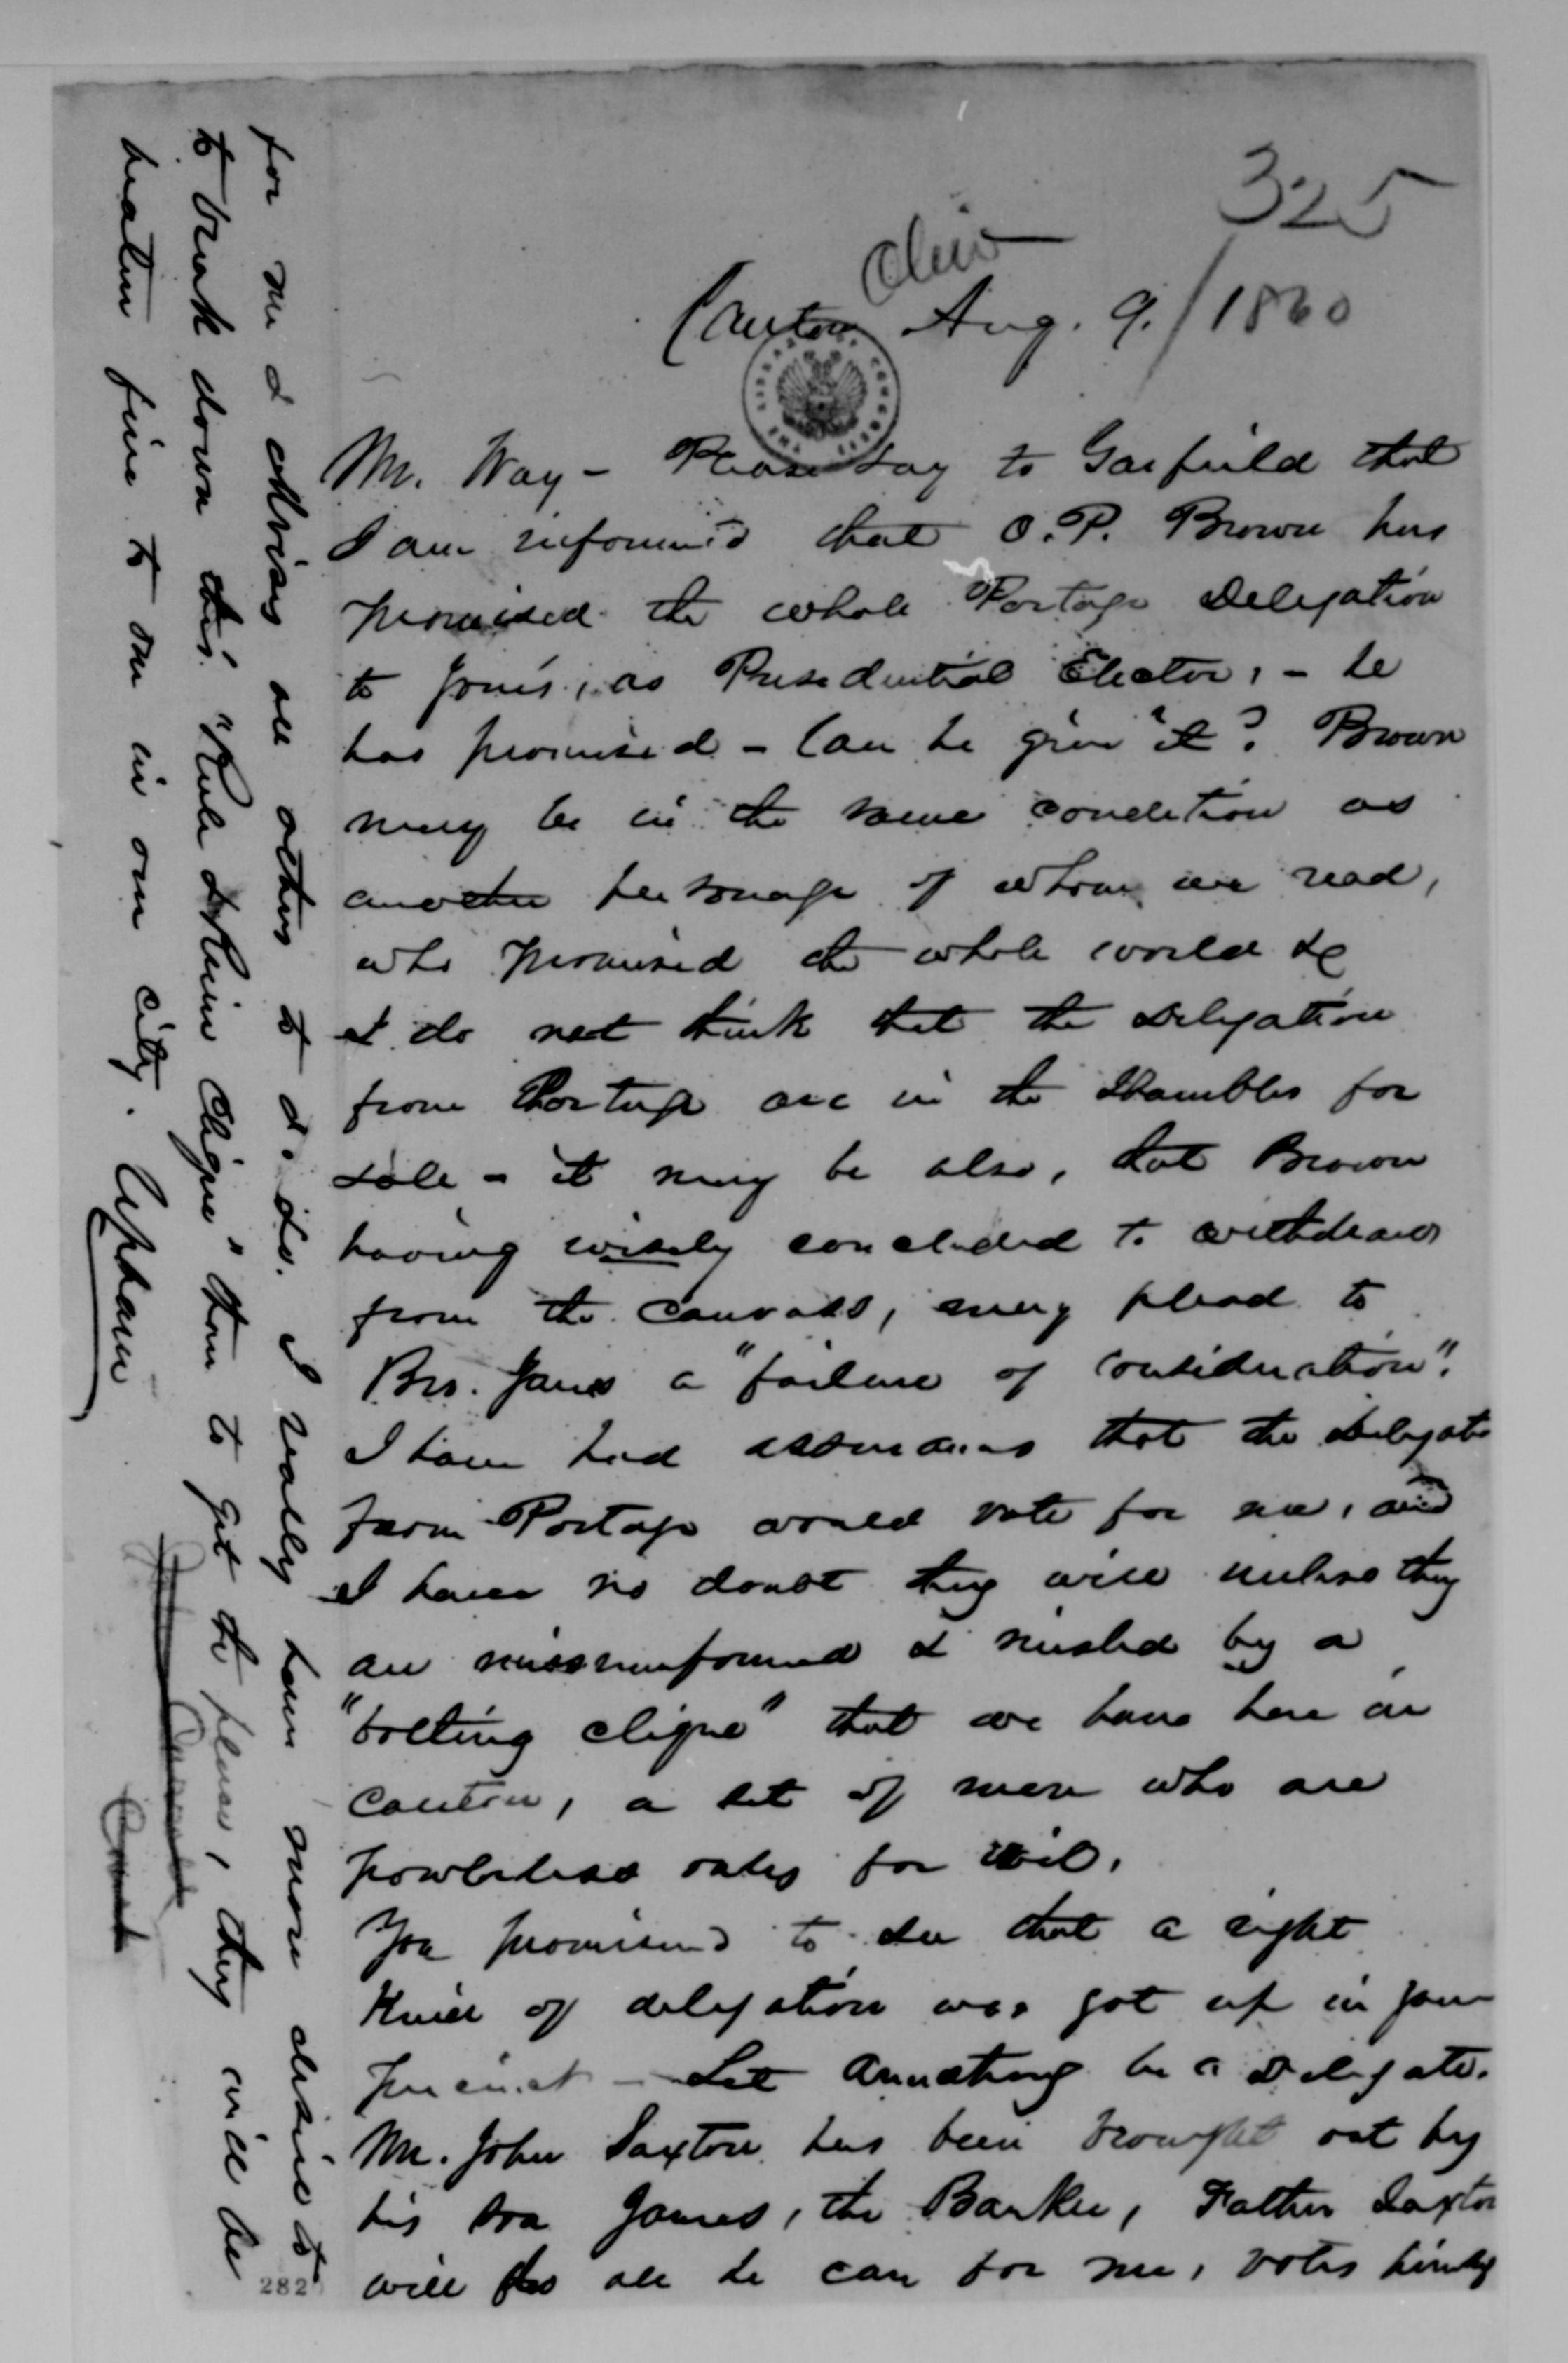 325
Ohio
Canton Aug. 9./1860
Mr. Way - Please say to Garfield that
I am informed that O.P. Brown has
promised the whole Portage Delegation
to Jones, as Presidential Elector, - he
has promised - Can he give it? Brown
may be in the same condition as
another personage of whom we read,
who promised the whole world &c
I do not think that the Delegation
from Portage are in the Shambles for
sale - it may be also, that Brown
having wisely concluded to withdraw
from the canvass, may plead to
Bro. Jones a "failure of consideration".
I have had assurances that the Delegate
from Portage would vote for me, and
I have no doubt they will unless they
are missinformed & misled by a
"bolting clique" that we have here in
Canton, a set of men who are
powerless only for evil.
You promised to see that a right
kind of delegation was got up in your
precinct - Let Armstrong be a Delegate.
Mr. John Saxton has been brought out by
his son James, the Banker, Father Saxton
will do all he can for me, votes himself
for me & advises all others to do so. I really have more desire to
to break down this clique than to get the place, they will be
beaten five to one in our city. Upham
282